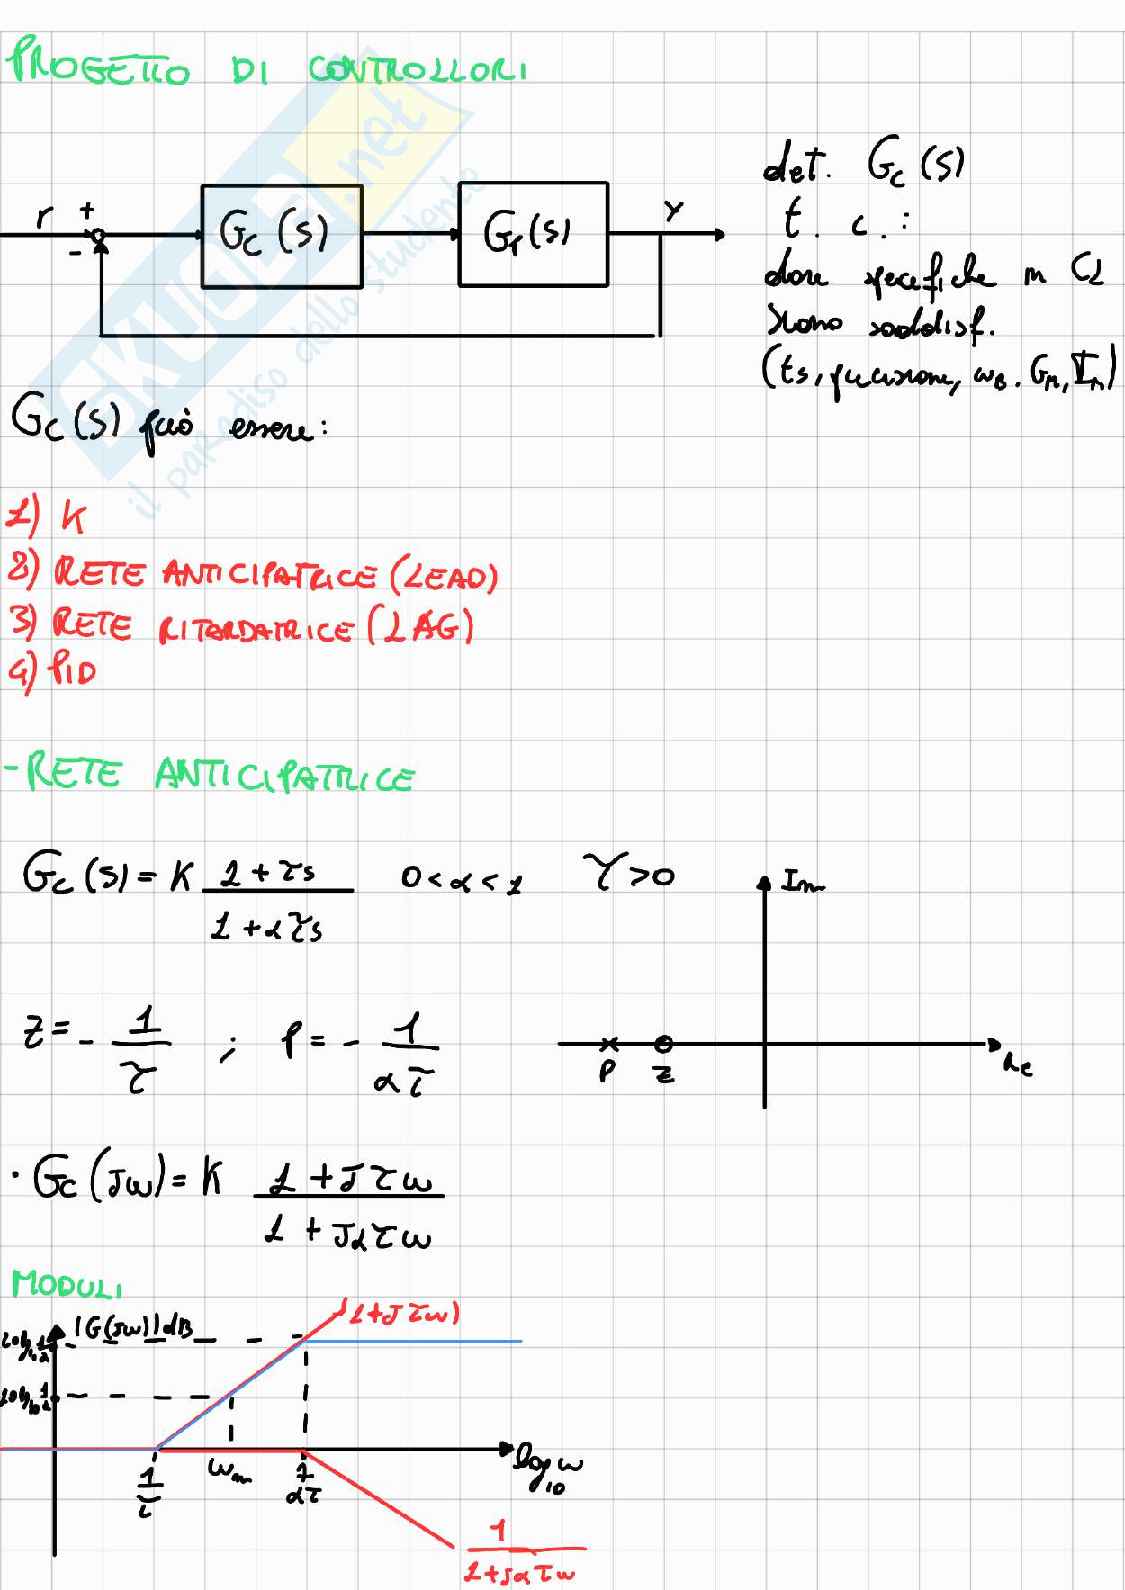 PROGETTO DI CONTROLLORI
SKUOLA.net
il paradiso dello studente
r + - G_C(s) G_P(s) Y
det. G_C(s)
t. c. :
dove specifiche in CL
siano soddisf.
(ts, precisione, ω_B, G_M, Φ_M)
G_C(s) può essere:
1) K
2) RETE ANTICIPATRICE (LEAD)
3) RETE RITARDATRICE (LAG)
4) PID
- RETE ANTICIPATRICE
G_C(s) = K (1 + τs)/(1 + ατs) 0 < α < 1 τ > 0
Im
z = - 1/τ ; P = - 1/(ατ)
P z Re
· G_C(Jω) = K (1 + Jτω)/(1 + Jατω)
MODULI
(1+Jτω)
|G(Jω)|dB
1/τ ω_m 1/(ατ) log_10 ω
1/(1+Jατω)